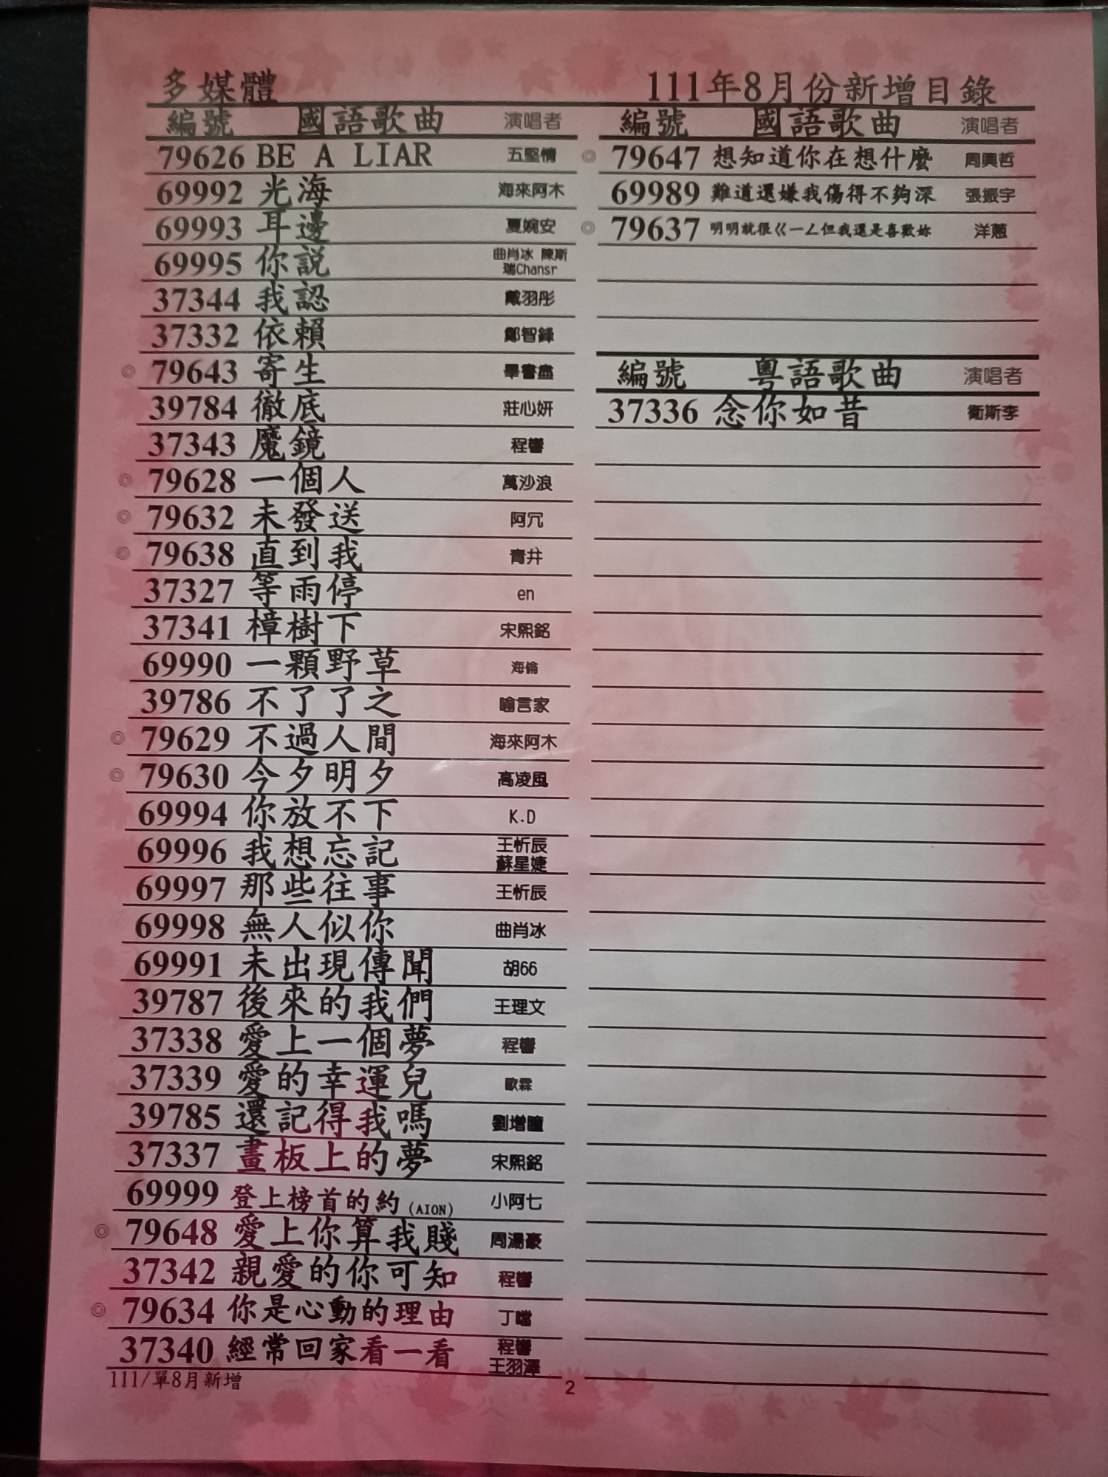 多媒體
111年8月份新增目錄
編號 國語歌曲 演唱者
79626 BE A LIAR 五堅情
69992 光海 海來阿木
69993 耳邊 夏婉安
69995 你說 曲肖冰 陳斯瑞Chansr
37344 我認 戴羽彤
37332 依賴 鄭智鋒
◎ 79643 寄生 畢書盡
39784 徹底 莊心妍
37343 魔鏡 程響
◎ 79628 一個人 萬沙浪
◎ 79632 未發送 阿冗
◎ 79638 直到我 青井
37327 等雨停 en
37341 樟樹下 宋熙銘
69990 一顆野草 海倫
39786 不了了之 喻言家
◎ 79629 不過人間 海來阿木
◎ 79630 今夕明夕 高凌風
69994 你放不下 K.D
69996 我想忘記 王忻辰 蘇星婕
69997 那些往事 王忻辰
69998 無人似你 曲肖冰
69991 未出現傳聞 胡66
39787 後來的我們 王理文
37338 愛上一個夢 程響
37339 愛的幸運兒 歐霖
39785 還記得我嗎 劉增瞳
37337 畫板上的夢 宋熙銘
69999 登上榜首的約(AION) 小阿七
◎ 79648 愛上你算我賤 周湯豪
37342 親愛的你可知 程響
◎ 79634 你是心動的理由 丁噹
37340 經常回家看一看 程響 王羽澤
編號 國語歌曲 演唱者
◎ 79647 想知道你在想什麼 周興哲
69989 難道還嫌我傷得不夠深 張振宇
◎ 79637 明明就很ㄍㄧㄥ但我還是喜歡妳 洋蔥
編號 粵語歌曲 演唱者
37336 念你如昔 衛斯李
111/單8月新增
2